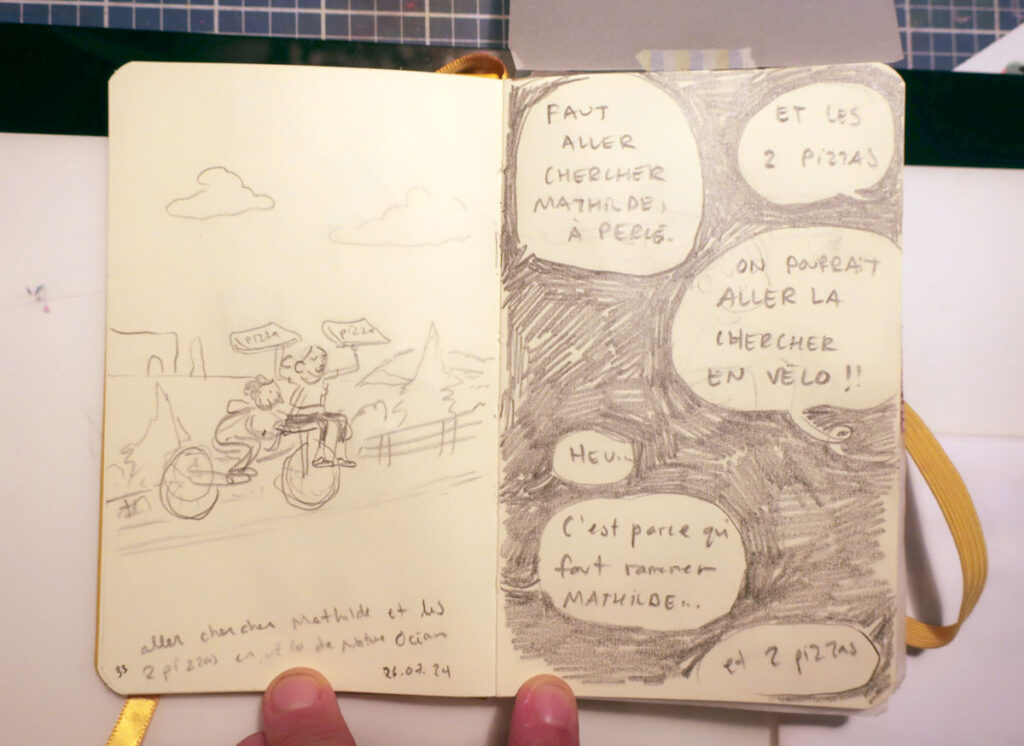 PIZZA
PIZZA
aller chercher Mathilde et les
2 pizzas en vélo de Notre Océan
33
26.07.24
FAUT
ALLER
CHERCHER
MATHILDE,
À PERLE.
ET LES
2 PIZZAS
ON POURRAIT
ALLER LA
CHERCHER
EN VÉLO !!
HEU...
C'est parce qui
faut ramener
MATHILDE...
et 2 pizzas